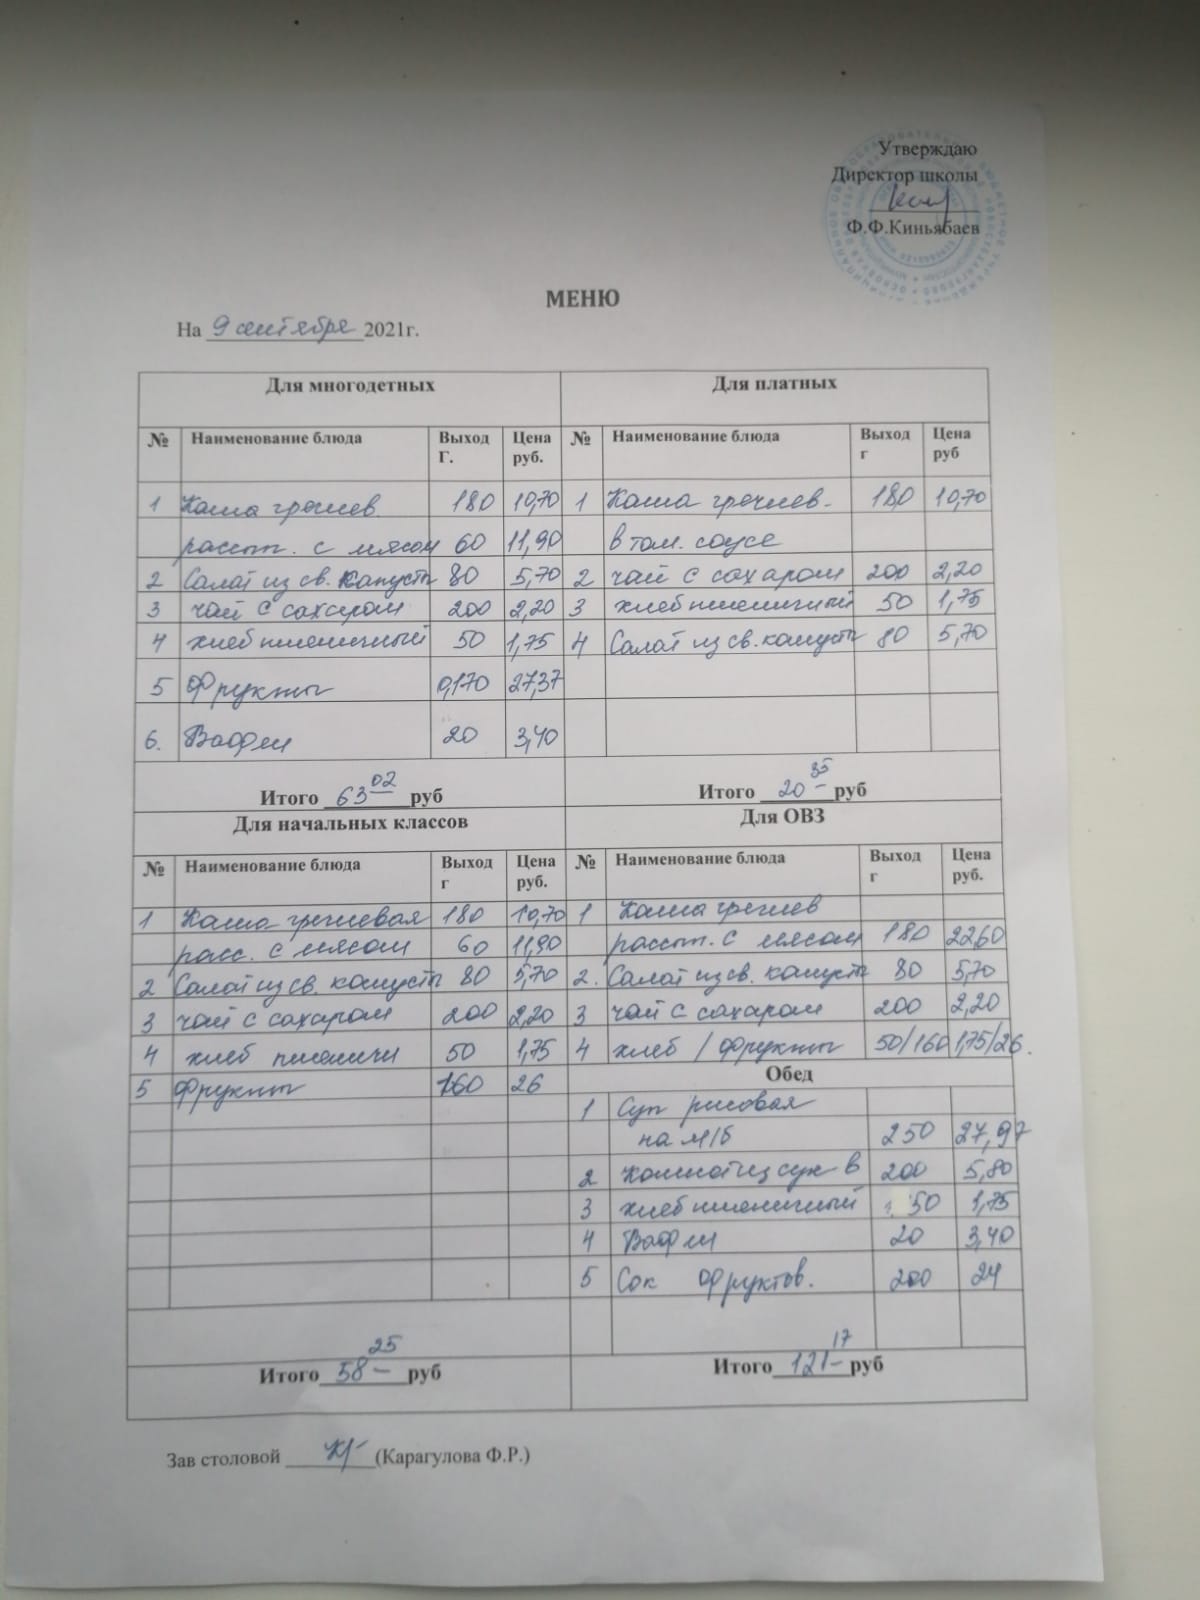 Утверждаю
Директор школы
Ф.Ф.Киньябаев
МЕНЮ
На 9 сентября 2021г.
Для многодетных Для платных
№ Наименование блюда Выход Г. Цена руб. № Наименование блюда Выход г Цена руб
1 Каша гречнев. 180 10,70 1 Каша гречнев. 180 10,70
рассып. с мясом 60 11,90 в том. соусе
2 Салат из св. капусты 80 5,70 2 чай с сахаром 200 2,20
3 чай с сахаром 200 2,20 3 хлеб пшеничный 50 1,75
4 хлеб пшеничный 50 1,75 4 Салат из св. капусты 80 5,70
5 Фрукты 0,170 27,37
6. Вафли 20 3,40
Итого 63 02 руб Итого 20 35 руб
Для начальных классов Для ОВЗ
№ Наименование блюда Выход г Цена руб. № Наименование блюда Выход г Цена руб.
1 Каша гречневая 180 10,70 1 Каша гречнев
расс. с мясом 60 11,90 рассып. с мясом 180 22,60
2 Салат из св. капусты 80 5,70 2. Салат из св. капусты 80 5,70
3 чай с сахаром 200 2,20 3 чай с сахаром 200 2,20
4 хлеб пшеничн 50 1,75 4 хлеб / фрукты 50/160 1,75/26.
5 Фрукты 160 26 Обед
1 Суп рисовая
на м/б 250 27,97
2 Компот из сух в 200 5,80
3 хлеб пшеничный 50 1,75
4 Вафли 20 3,40
5 Сок фруктов. 200 24
Итого 58 25 руб Итого 121 17 руб
Зав столовой (Карагулова Ф.Р.)